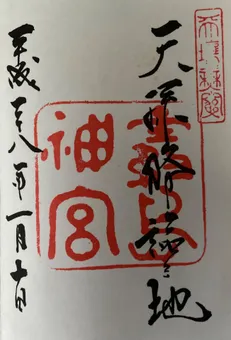 天孫降臨之地
霧島
神宮
平成廿八年一月十日